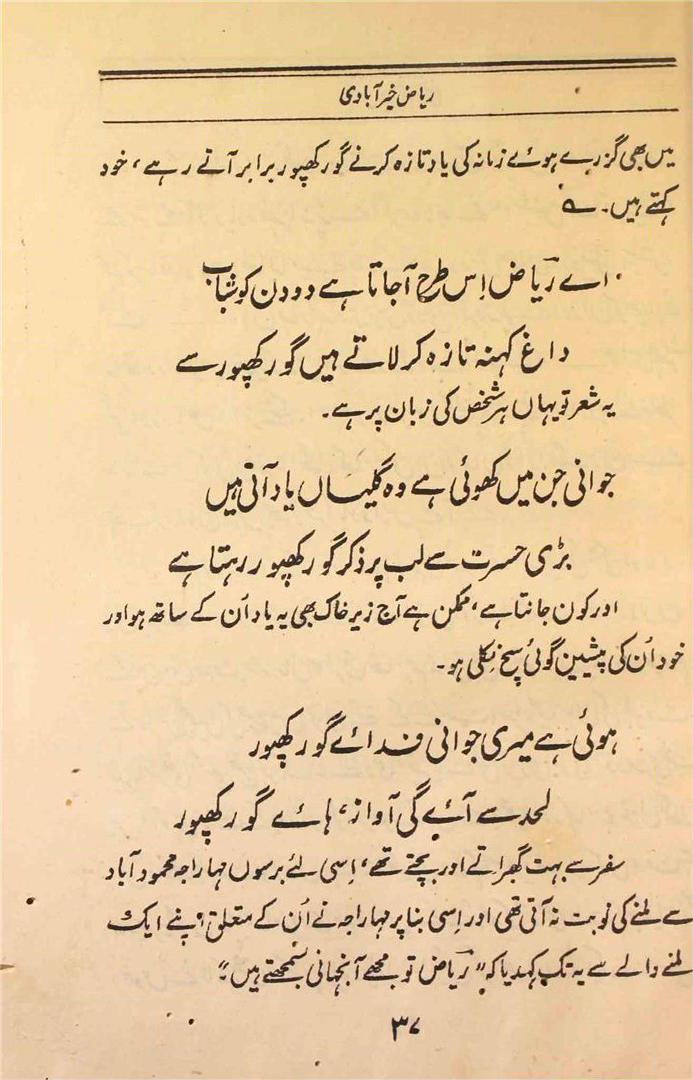 ریاض خیرآبادی
میں بھی گزرے ہوئے زمانہ کی یاد تازہ کرنے گورکھپور برابر آتے رہے، خود
کہتے ہیں۔ ؎
اے ریاضؔ اِس طرح آجاتا ہے دو دن کو شباب
داغ کہنہ تازہ کر لاتے ہیں گورکھپور سے
یہ شعر تو یہاں ہر شخص کی زبان پر ہے۔
جوانی جن میں کھوئی ہے وہ گلیاں یاد آتی ہیں
بڑی حسرت سے لب پر ذکر گورکھپور رہتا ہے
اور کون جانتا ہے، ممکن ہے آج زیر خاک بھی یہ یاد اُن کے ساتھ ہو اور
خود اُن کی پیشین گوئی سچ نکلی ہو۔
ہوئی ہے میری جوانی فدائے گورکھپور
لحد سے آئے گی آواز، ہائے گورکھپور
سفر سے بہت گھبراتے اور بچتے تھے، اِسی لئے برسوں مہاراجہ محمودآباد
سے ملنے کی نوبت نہ آتی تھی اور اِسی بنا پر مہاراجہ نے اُن کے متعلق اپنے ایک
ملنے والے سے یہ تک کہدیا کہ "ریاضؔ تو مجھے آنجہانی سمجھتے ہیں"
۳۷